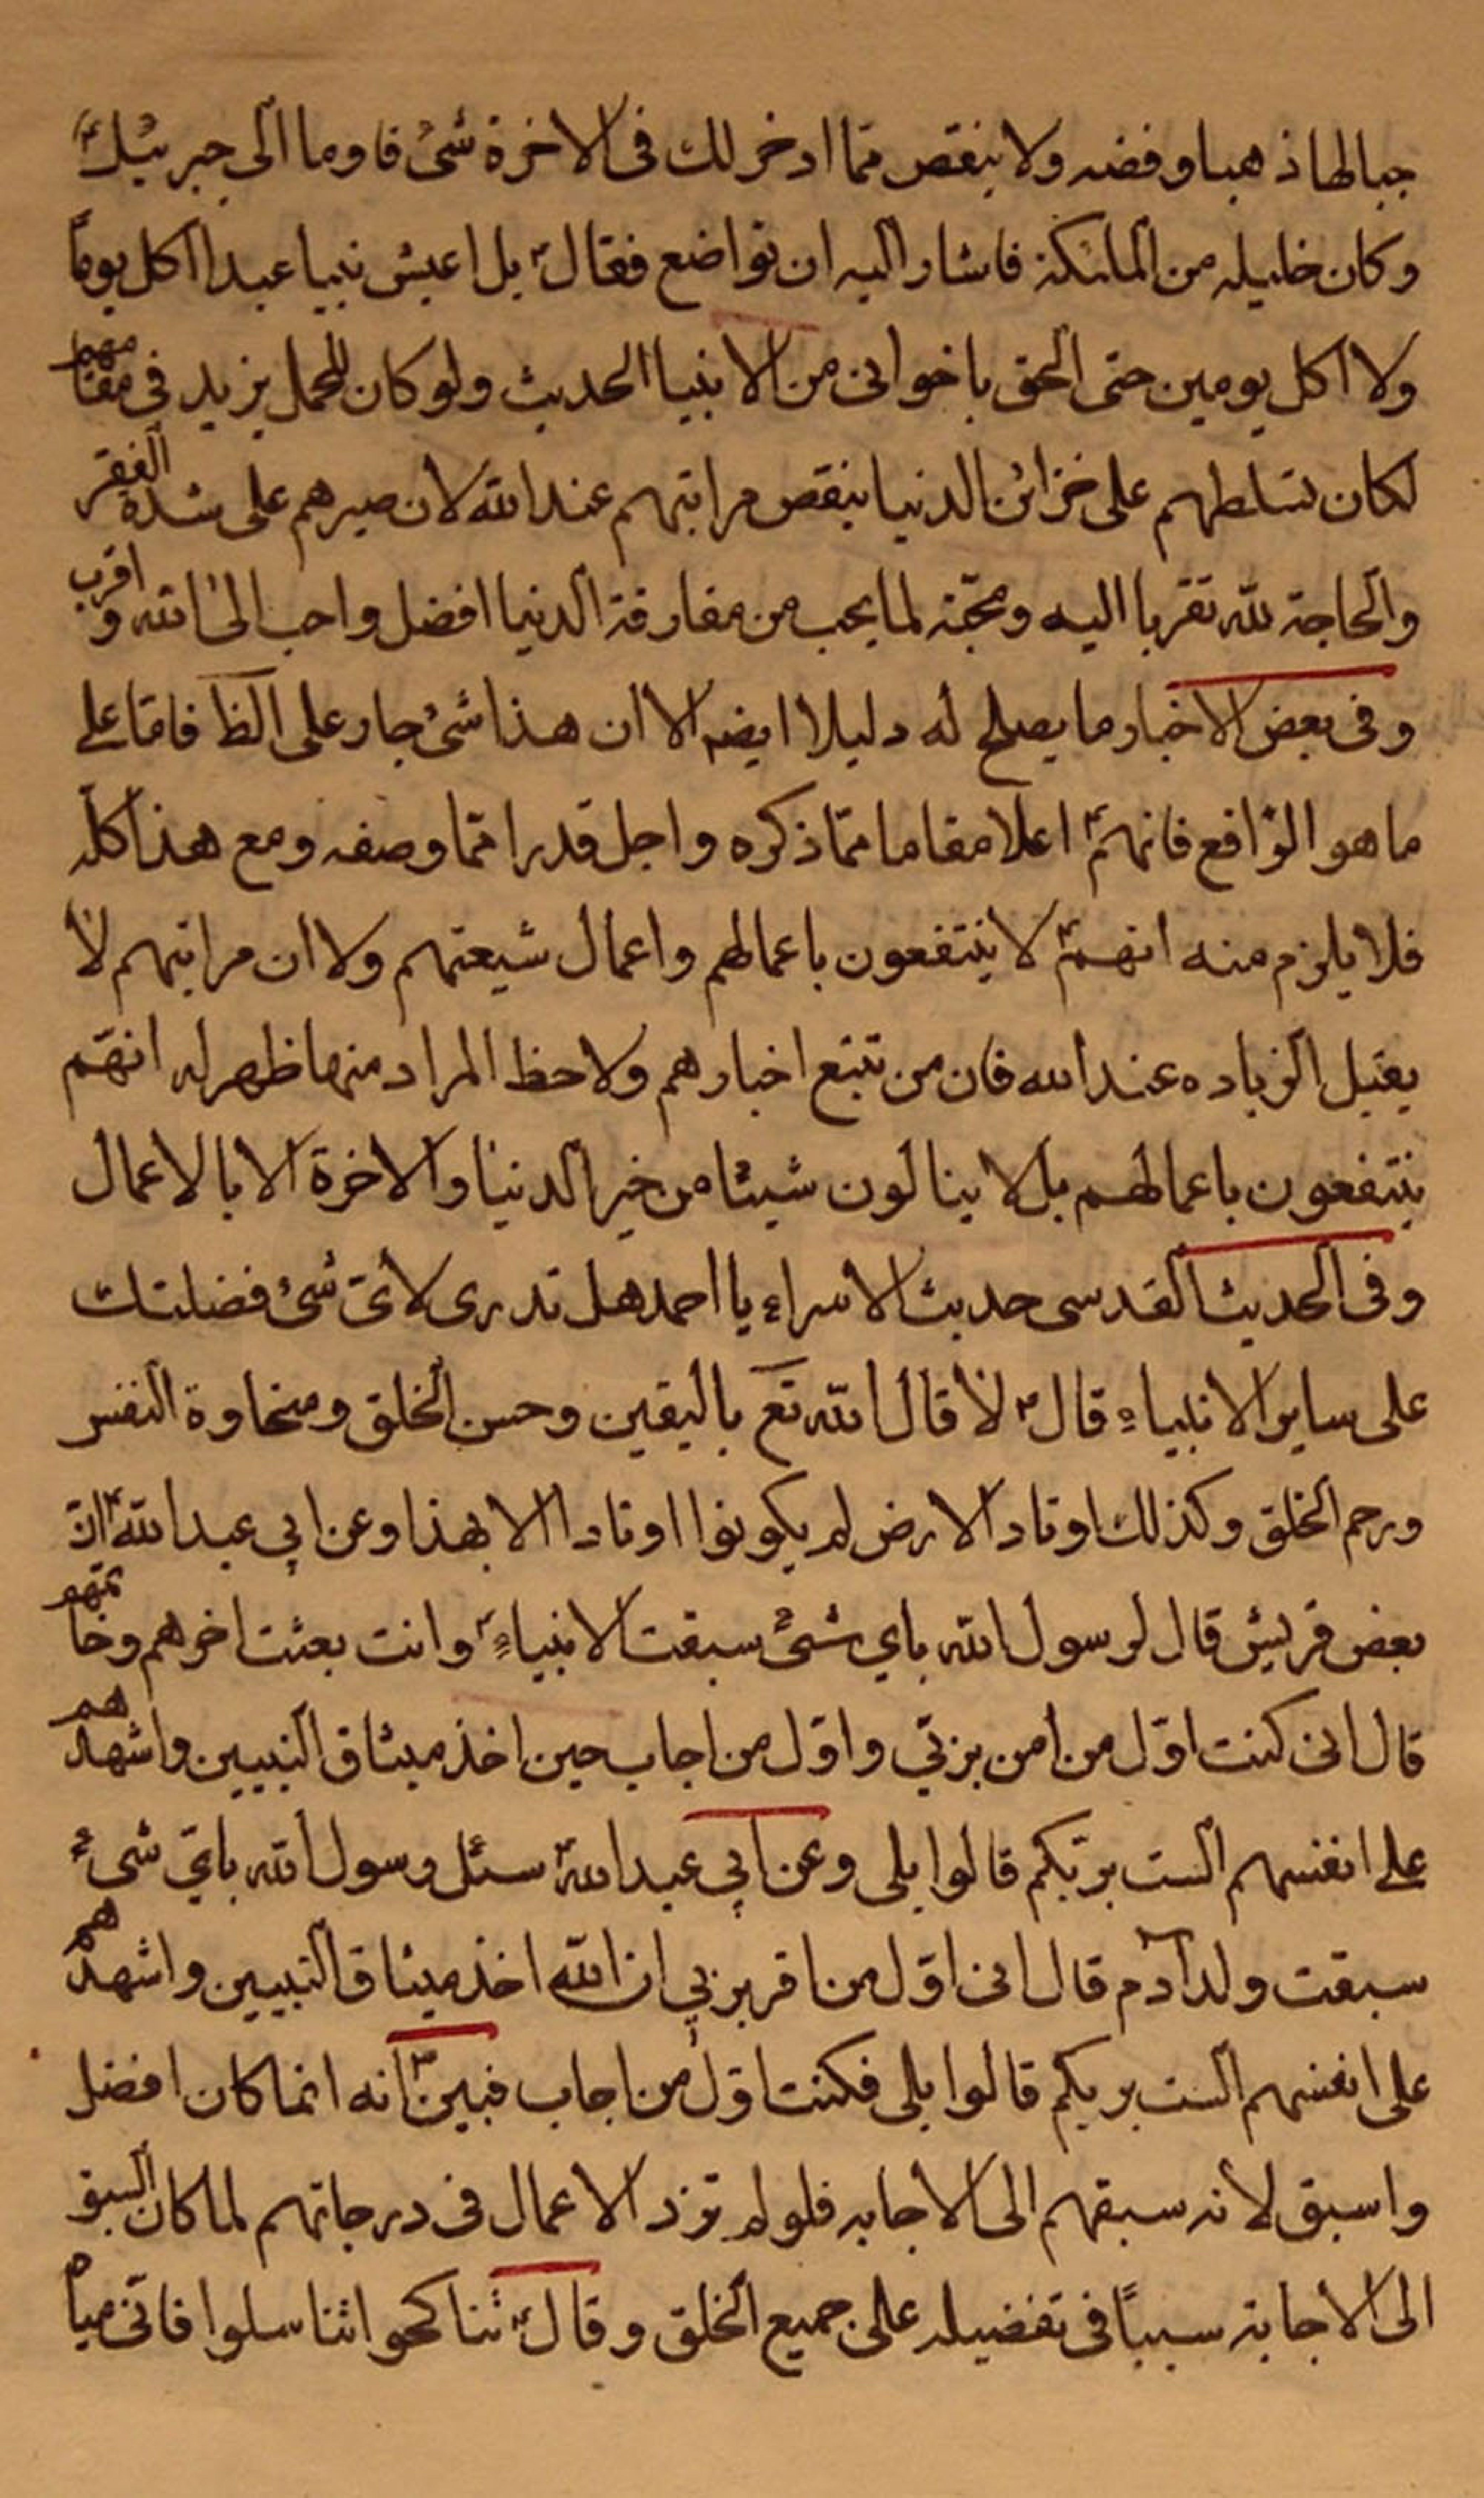 جبالها ذهبا وفضه ولا ينقص ممّا ادخر لك فى الاخرة شئ فاوما الى جبرئيل ع
وكان خليله من الملئكة فاشار اليه ان تواضع فقال ص بل اعيش نبيا عبدا اكل يوماً
ولا اكل يومين حتى الحق باخوانى من الانبيا الحديث ولو كان المحمل يزيد فى مقامهم
لكان تسلطهم على خزائن الدنيا ينقص مراتبهم عند الله لان صبرهم على شده الفقر
والحاجة لله تقربا اليه ومحبّة لما يحب من مفارقة الدنيا افضل واحب الى الله واقرب
وفى بعض الاخبار ما يصلح له دليلا ايضه الا ان هذا شئ جار على الظ فامّا على
ما هو الواقع فانهم ع اعلا مقاما ممّا ذكره واجل قدرا ممّا وصفه ومع هذا كلّه
فلا يلزم منه انهم ع لا ينتفعون باعمالهم واعمال شيعتهم ولا ان مراتبهم لا
يقبل الزياده عند الله فان من تتبع اخبارهم ولاحظ المراد منها ظهر له انهّم
ينتفعون باعمالهم بل لا ينالون شيئا من خير الدنيا والاخرة الا بالاعمال
وفى الحديث القدسى حديث الاسراء يا احمد هل تدرى لاىّ شئ فضلتك
على ساير الانبياء قال ص لا قال الله تع باليقين وحسن الخلق وسخاوة النفس
ورحم الخلق وكذلك اوتاد الارض لم يكونوا اوتادا الا بهذا وعن ابي عبد الله ع انّ
بعض قريش قال لرسول الله باي شئ سبقت الانبياء وانت بعثت اخرهم وخاتمهم
قال انى كنت اوّل من امن بربّي واوّل من اجاب حين اخذ ميثاق النبيين واشهدهم
على انفسهم الست بربّكم قالوا بلى وعن ابي عبد الله ع سئل رسول الله باىّ شئ
سبقت ولد آدم قال انى اوّل من اقر بربي ان الله اخذ ميثاق النبيين واشهدهم
على انفسهم الست بربكم قالوا بلى فكنت اوّل من اجاب فبين ص انه انما كان افضل
واسبق لانه سبقهم الى الاجابه فلو لم تزد الاعمال فى درجاتهم لما كان السبق
الى الاجابة سبباً فى تفضيله على جميع الخلق وقال ص تناكحوا تناسلوا فانّى مباه